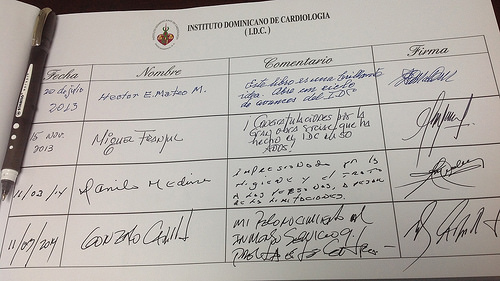 INSTITUTO DOMINICANO DE CARDIOLOGIA
( I.D.C. )
Fecha Nombre Comentario Firma
20 de julio 2013 Hector E. Mateo M.
Este libro es una brillante
idea. Abre un ciclo
de avances del IDC
15 Nov. 2013 Miguel
¡Congratulaciones por la
Gran obra social que ha
hecho el IDC en 50
AÑOS!
11/02/14 Danilo Medina
impresionado por la
higiene y el trato
a las personas, a pesar
de las limitaciones.
11/07/2014 GONZALO
Mi reconocimiento al
INMENSO SERVICIO q.
presta este Centro